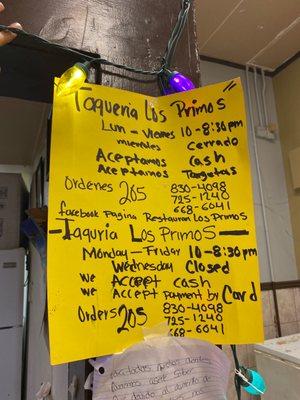 Taqueria Los Primos"
Lun - Viernes 10-8:30pm
miercoles cerrado
Aceptamos cash
Aceptamos Targetas
Ordenes 205 830-4098
725-1240
668-6041
facebook Pagina Restauran Los Primos
-Taquria Los Primos-
Monday-Friday 10-8:30pm
Wednesday Closed
We Accept cash
we Accept Payment by Card
Orders 205 830-4098
725-1240
668-6041